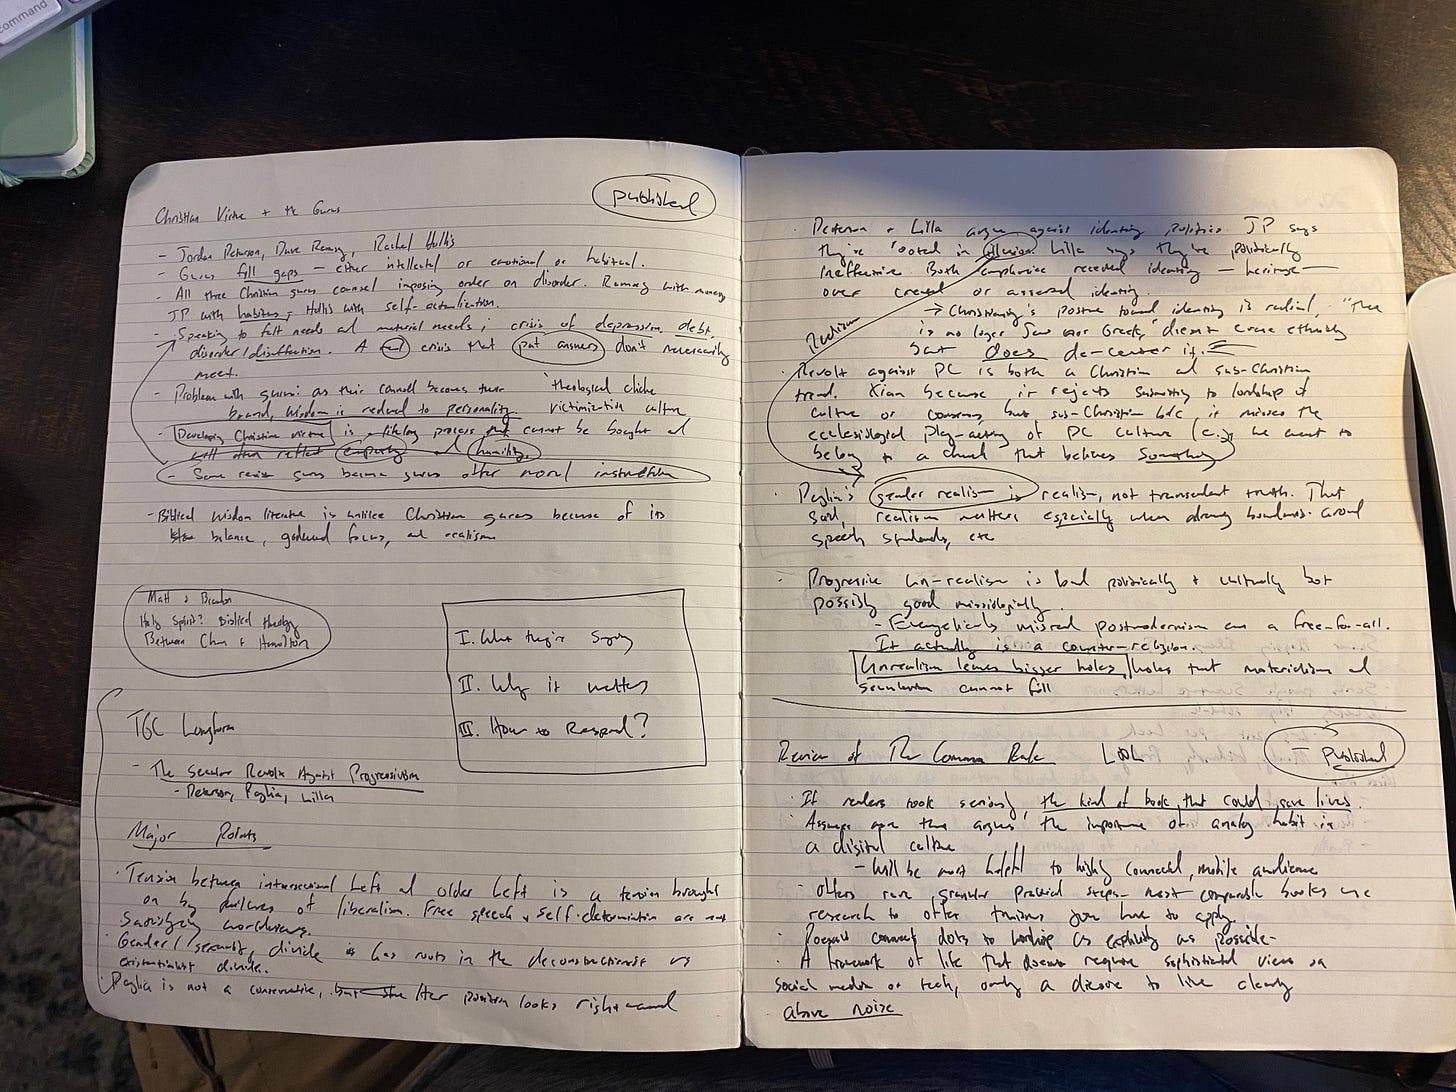 command
published
Christian Virtue + the Gurus
- Jordan Peterson, Dave Ramsey, Rachel Hollis
- Gurus fill gaps — either intellectual or emotional or habitual.
- All three Christian gurus counsel imposing order on disorder. Ramsey with money
JP with habits, Hollis with self-actualization.
- Speaking to felt needs and material needs; crisis of depression, debt,
disorder/disaffection. A real crisis that pat answers don't necessarily
meet.
- Problem with gurus: as their counsel becomes their
brand, wisdom is reduced to personality.
theological cliche
victimization culture
- Developing Christian virtue is a lifelong process that cannot be bought and
will often reflect and humility.
- Some resist gurus become gurus after moral instruction
- Biblical wisdom literature is unlike Christian gurus because of its
balance, focus, and realism
Matt + Brandon
Holy Spirit? Biblical theology
Between Chan + Hamilton
I. What they're Saying
II. Why it matters
III. How to Respond?
TGC Longform
- The Secular Revolt Against Progressivism
- Peterson, Paglia, Lilla
Major Points
· Tension between intersectional Left and older Left is a tension brought
on by failures of liberalism. Free speech + self-determination are not
Satisfying worldviews.
· Gender/sexuality divide has roots in the deconstructionist vs
existentialist divide.
· Paglia is not a conservative, but the Her position looks rightward
· Peterson + Lilla argue against identity politics JP says
they're rooted in illusion. Lilla says they're politically
ineffective. Both emphasize received identity — heritage —
over created or asserted identity.
→ Christianity's posture toward identity is radical, "There
is no longer Jew nor Greek," doesn't erase ethnicity
but does de-center it.
Realism
· Revolt against PC is both a Christian and sub-Christian
trend. Xian because it rejects submitting to lordship of
culture or consensus, but sub-Christian b/c it misses the
ecclesiological play-acting of PC culture (e.g. we want to
belong to a church that believes something)
· Paglia's gender realism is realism, not transcendent truth. That
said, realism matters especially when drawing boundaries around
speech standards, etc
· Progressive un-realism is bad politically + culturally but
possibly good missiologically.
- Evangelicals misread postmodernism as a free-for-all.
It actually is a counter-religion.
Unrealism leaves bigger holes, holes that materialism and
secularism cannot fill
Review of The Common Rule
— published
· If readers took seriously, the kind of book that could save lives.
· Assumes more than argues the importance of analog habit in
a digital culture
- Will be most helpful to highly connected, mobile audience
· Offers rare, granular practical steps — most comparable books use
research to offer truisms you have to apply.
· connect dots to worship as explicitly as possible -
· A framework of life that doesn't require sophisticated views on
social media or tech, only a desire to live clearly
above noise